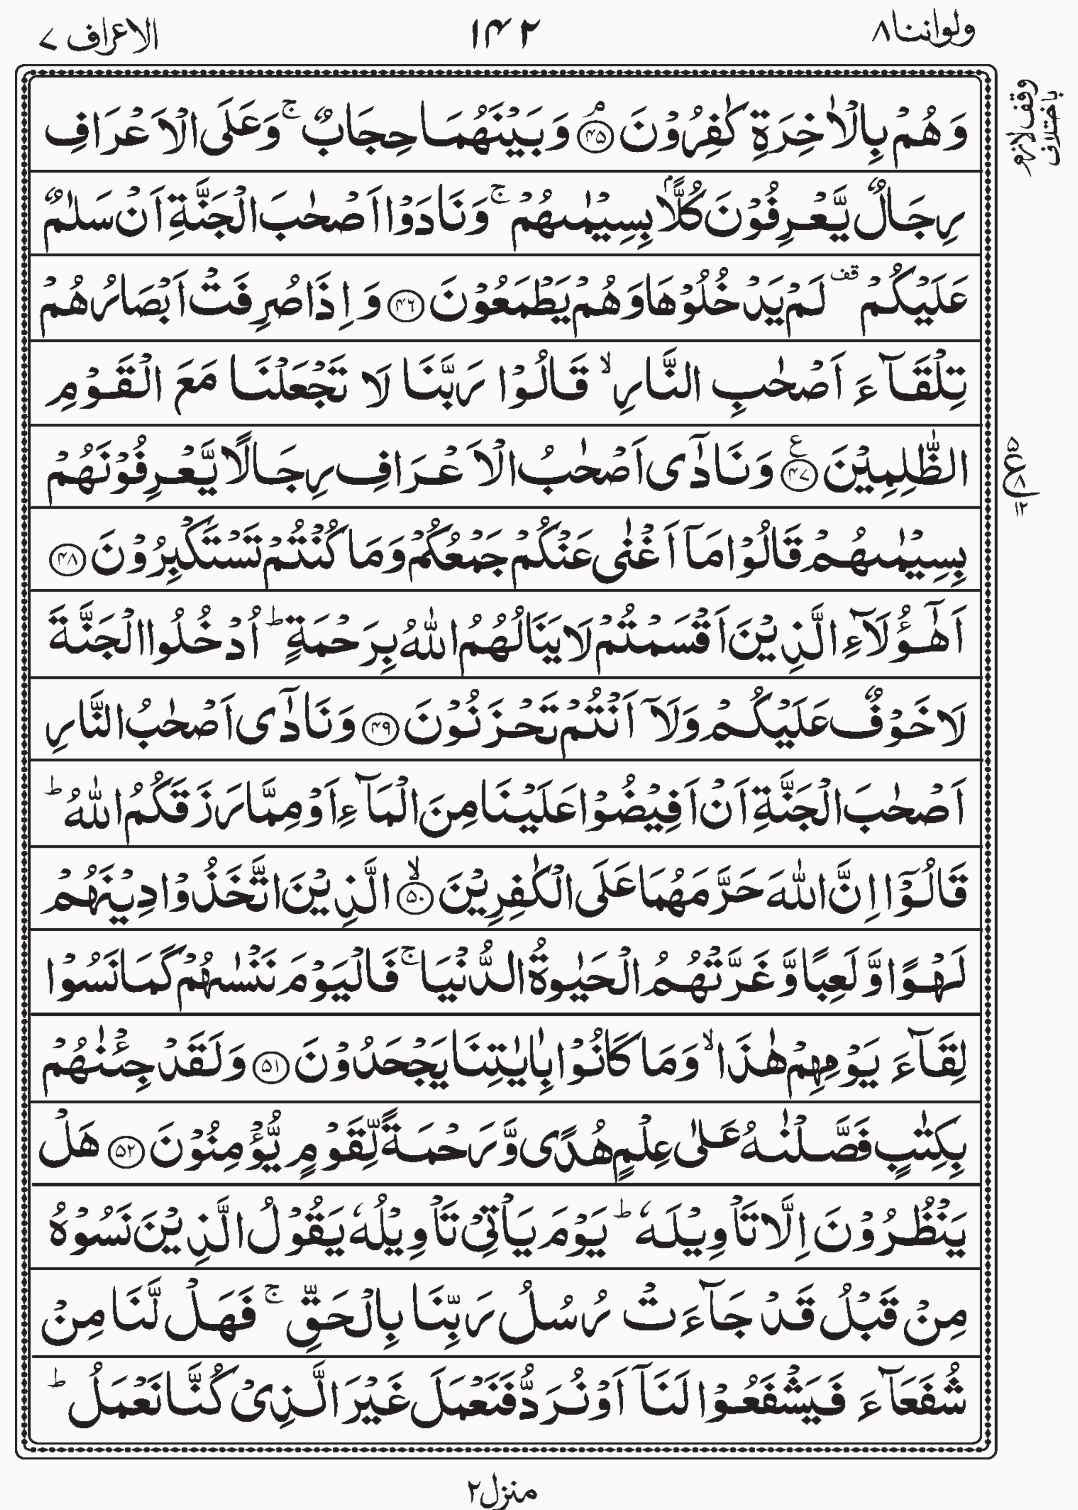 ولواننا ٨ ١٤٢ الاعراف ٧
وقف لازم
باختلاف
وَهُمْ بِالْاٰخِرَةِ كٰفِرُوْنَ ۘ﴿۴۵﴾ وَبَيْنَهُمَا حِجَابٌ ۚ وَعَلَى الْاَعْرَافِ
رِجَالٌ يَّعْرِفُوْنَ كُلًّاۢ بِسِيْمٰىهُمْ ۚ وَنَادَوْا اَصْحٰبَ الْجَنَّةِ اَنْ سَلٰمٌ
عَلَيْكُمْ ۟ قف لَمْ يَدْخُلُوْهَا وَهُمْ يَطْمَعُوْنَ ﴿۴۶﴾ وَاِذَا صُرِفَتْ اَبْصَارُهُمْ
تِلْقَآءَ اَصْحٰبِ النَّارِ ۙ قَالُوْا رَبَّنَا لَا تَجْعَلْنَا مَعَ الْقَوْمِ
الظّٰلِمِيْنَ ﴿۴۷﴾ ع وَنَادٰٓى اَصْحٰبُ الْاَعْرَافِ رِجَالًا يَّعْرِفُوْنَهُمْ
۵ ع ٨ ١٢
بِسِيْمٰىهُمْ قَالُوْا مَآ اَغْنٰى عَنْكُمْ جَمْعُكُمْ وَمَا كُنْتُمْ تَسْتَكْبِرُوْنَ ﴿۴۸﴾
اَهٰٓؤُلَآءِ الَّذِيْنَ اَقْسَمْتُمْ لَا يَنَالُهُمُ اللّٰهُ بِرَحْمَةٍ ؕ اُدْخُلُوا الْجَنَّةَ
لَا خَوْفٌ عَلَيْكُمْ وَلَآ اَنْتُمْ تَحْزَنُوْنَ ﴿۴۹﴾ وَنَادٰٓى اَصْحٰبُ النَّارِ
اَصْحٰبَ الْجَنَّةِ اَنْ اَفِيْضُوْا عَلَيْنَا مِنَ الْمَآءِ اَوْ مِمَّا رَزَقَكُمُ اللّٰهُ ؕ
قَالُوْٓا اِنَّ اللّٰهَ حَرَّمَهُمَا عَلَى الْكٰفِرِيْنَ ۙ﴿۵۰﴾ الَّذِيْنَ اتَّخَذُوْا دِيْنَهُمْ
لَهْوًا وَّلَعِبًا وَّغَرَّتْهُمُ الْحَيٰوةُ الدُّنْيَا ۚ فَالْيَوْمَ نَنْسٰىهُمْ كَمَا نَسُوْا
لِقَآءَ يَوْمِهِمْ هٰذَا ۙ وَمَا كَانُوْا بِاٰيٰتِنَا يَجْحَدُوْنَ ﴿۵۱﴾ وَلَقَدْ جِئْنٰهُمْ
بِكِتٰبٍ فَصَّلْنٰهُ عَلٰى عِلْمٍ هُدًى وَّرَحْمَةً لِّقَوْمٍ يُّؤْمِنُوْنَ ﴿۵۲﴾ هَلْ
يَنْظُرُوْنَ اِلَّا تَاْوِيْلَهٗ ؕ يَوْمَ يَاْتِيْ تَاْوِيْلُهٗ يَقُوْلُ الَّذِيْنَ نَسُوْهُ
مِنْ قَبْلُ قَدْ جَآءَتْ رُسُلُ رَبِّنَا بِالْحَقِّ ۚ فَهَلْ لَّنَا مِنْ
شُفَعَآءَ فَيَشْفَعُوْا لَنَآ اَوْ نُرَدُّ فَنَعْمَلَ غَيْرَ الَّذِيْ كُنَّا نَعْمَلُ ؕ
منزل ٢